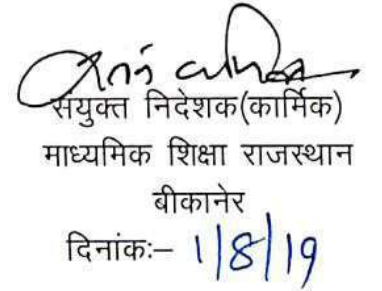 संयुक्त निदेशक(कार्मिक)
माध्यमिक शिक्षा राजस्थान
बीकानेर
दिनांकः– 1/8/19